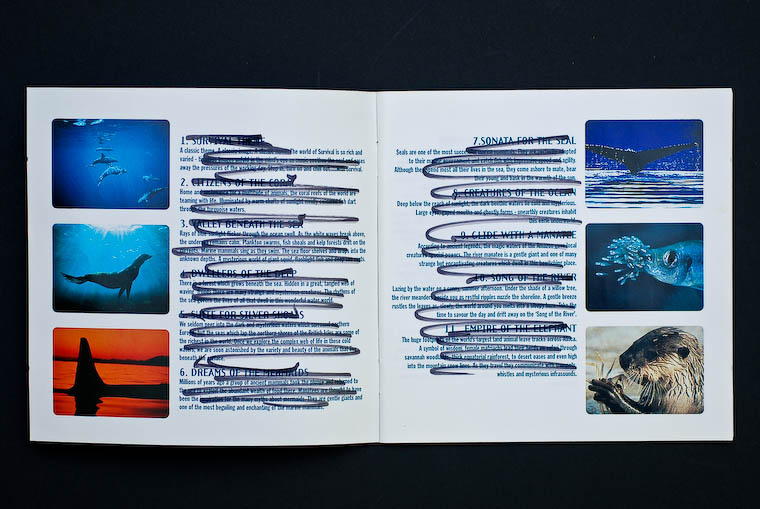 1. SURVIVAL
A classic theme. A classic The world of Survival is so rich and
varied -
away the pressures of the working day. Stop in, turn on and chill out
2. CITIZENS OF THE CORAL
Home and animals, the coral reefs of the world are
teaming with life. Illuminated by warm shafts of sunlight fish dart
through the turquoise waters.
3. BALLET BENEATH THE SEA
Rays of sunlight flicker through the ocean swell. As the white waves break above,
the undersea remains calm. Plankton swarms, fish shoals and kelp forests drift on the
Marine mammals sing as they swim. The sea floor shelves and drops into the
unknown depths. A mysterious world of giant squid
DWELLERS OF THE DEEP
There is a forest which grows beneath the sea. Hidden in a great, tangled web of
waving weed there are many strange and mysterious creatures. The rhythms of
the sea govern the lives of all that dwell in this wonderful water world.
5. SUITE FOR SILVER SHOALS
We seldom peer into the dark and mysterious waters which surround northern
Europe but the seas which lap the northern shores of the British Isles are some of
the richest in the world. Once we explore the complex web of life in these cold
waters, we are soon astonished by the variety and beauty of the animals that live
beneath the surface.
6. DREAMS OF THE MERMAIDS
Millions of years ago a group of ancient mammals left the shore and returned to
the abundant wealth of food there. Manatees are thought to have
been the inspiration for the many myths about mermaids. They are gentle giants and
one of the most beguiling and enchanting of the marine mammals.
7. SONATA FOR THE SEAL
Seals are one of the most successful adapted
to their marine and agility.
Although they spend most all their lives in the sea, they come ashore to mate, bear
their young and bask in the warmth of the sun.
8. CREATURES OF THE OCEAN
Deep below the reach of sunlight, the dark benthic waters be cold and mysterious.
Large eyes, gaped mouths and ghostly forms - unearthly creatures inhabit
this eerie underworld.
9. GLIDE WITH A MANATEE
According to ancient legends, the magic waters of the Amazon gave local
creatures special powers. The river manatee is a gentle giant and one of many
strange but enchanting creatures which dwell in this bewitching place.
10. SONG OF THE RIVER
Lazing by the water on a sunny, summer afternoon. Under the shade of a willow tree,
the river meanders beside you as restful ripples nuzzle the shoreline. A gentle breeze
rustles the leaves as, slowly, the world around you melts into a sleepy haze. This is the
time to savour the day and drift away on the 'Song of the River'.
11. EMPIRE OF THE ELEPHANT
The huge footprints of the world's largest land animal leave tracks across Africa.
A symbol of wisdom, female matriarchs through
savannah woodlands, thick equatorial rainforest, to desert oases and even high
into the mountain snow lines. As they travel they communicate with
whistles and mysterious infrasounds.